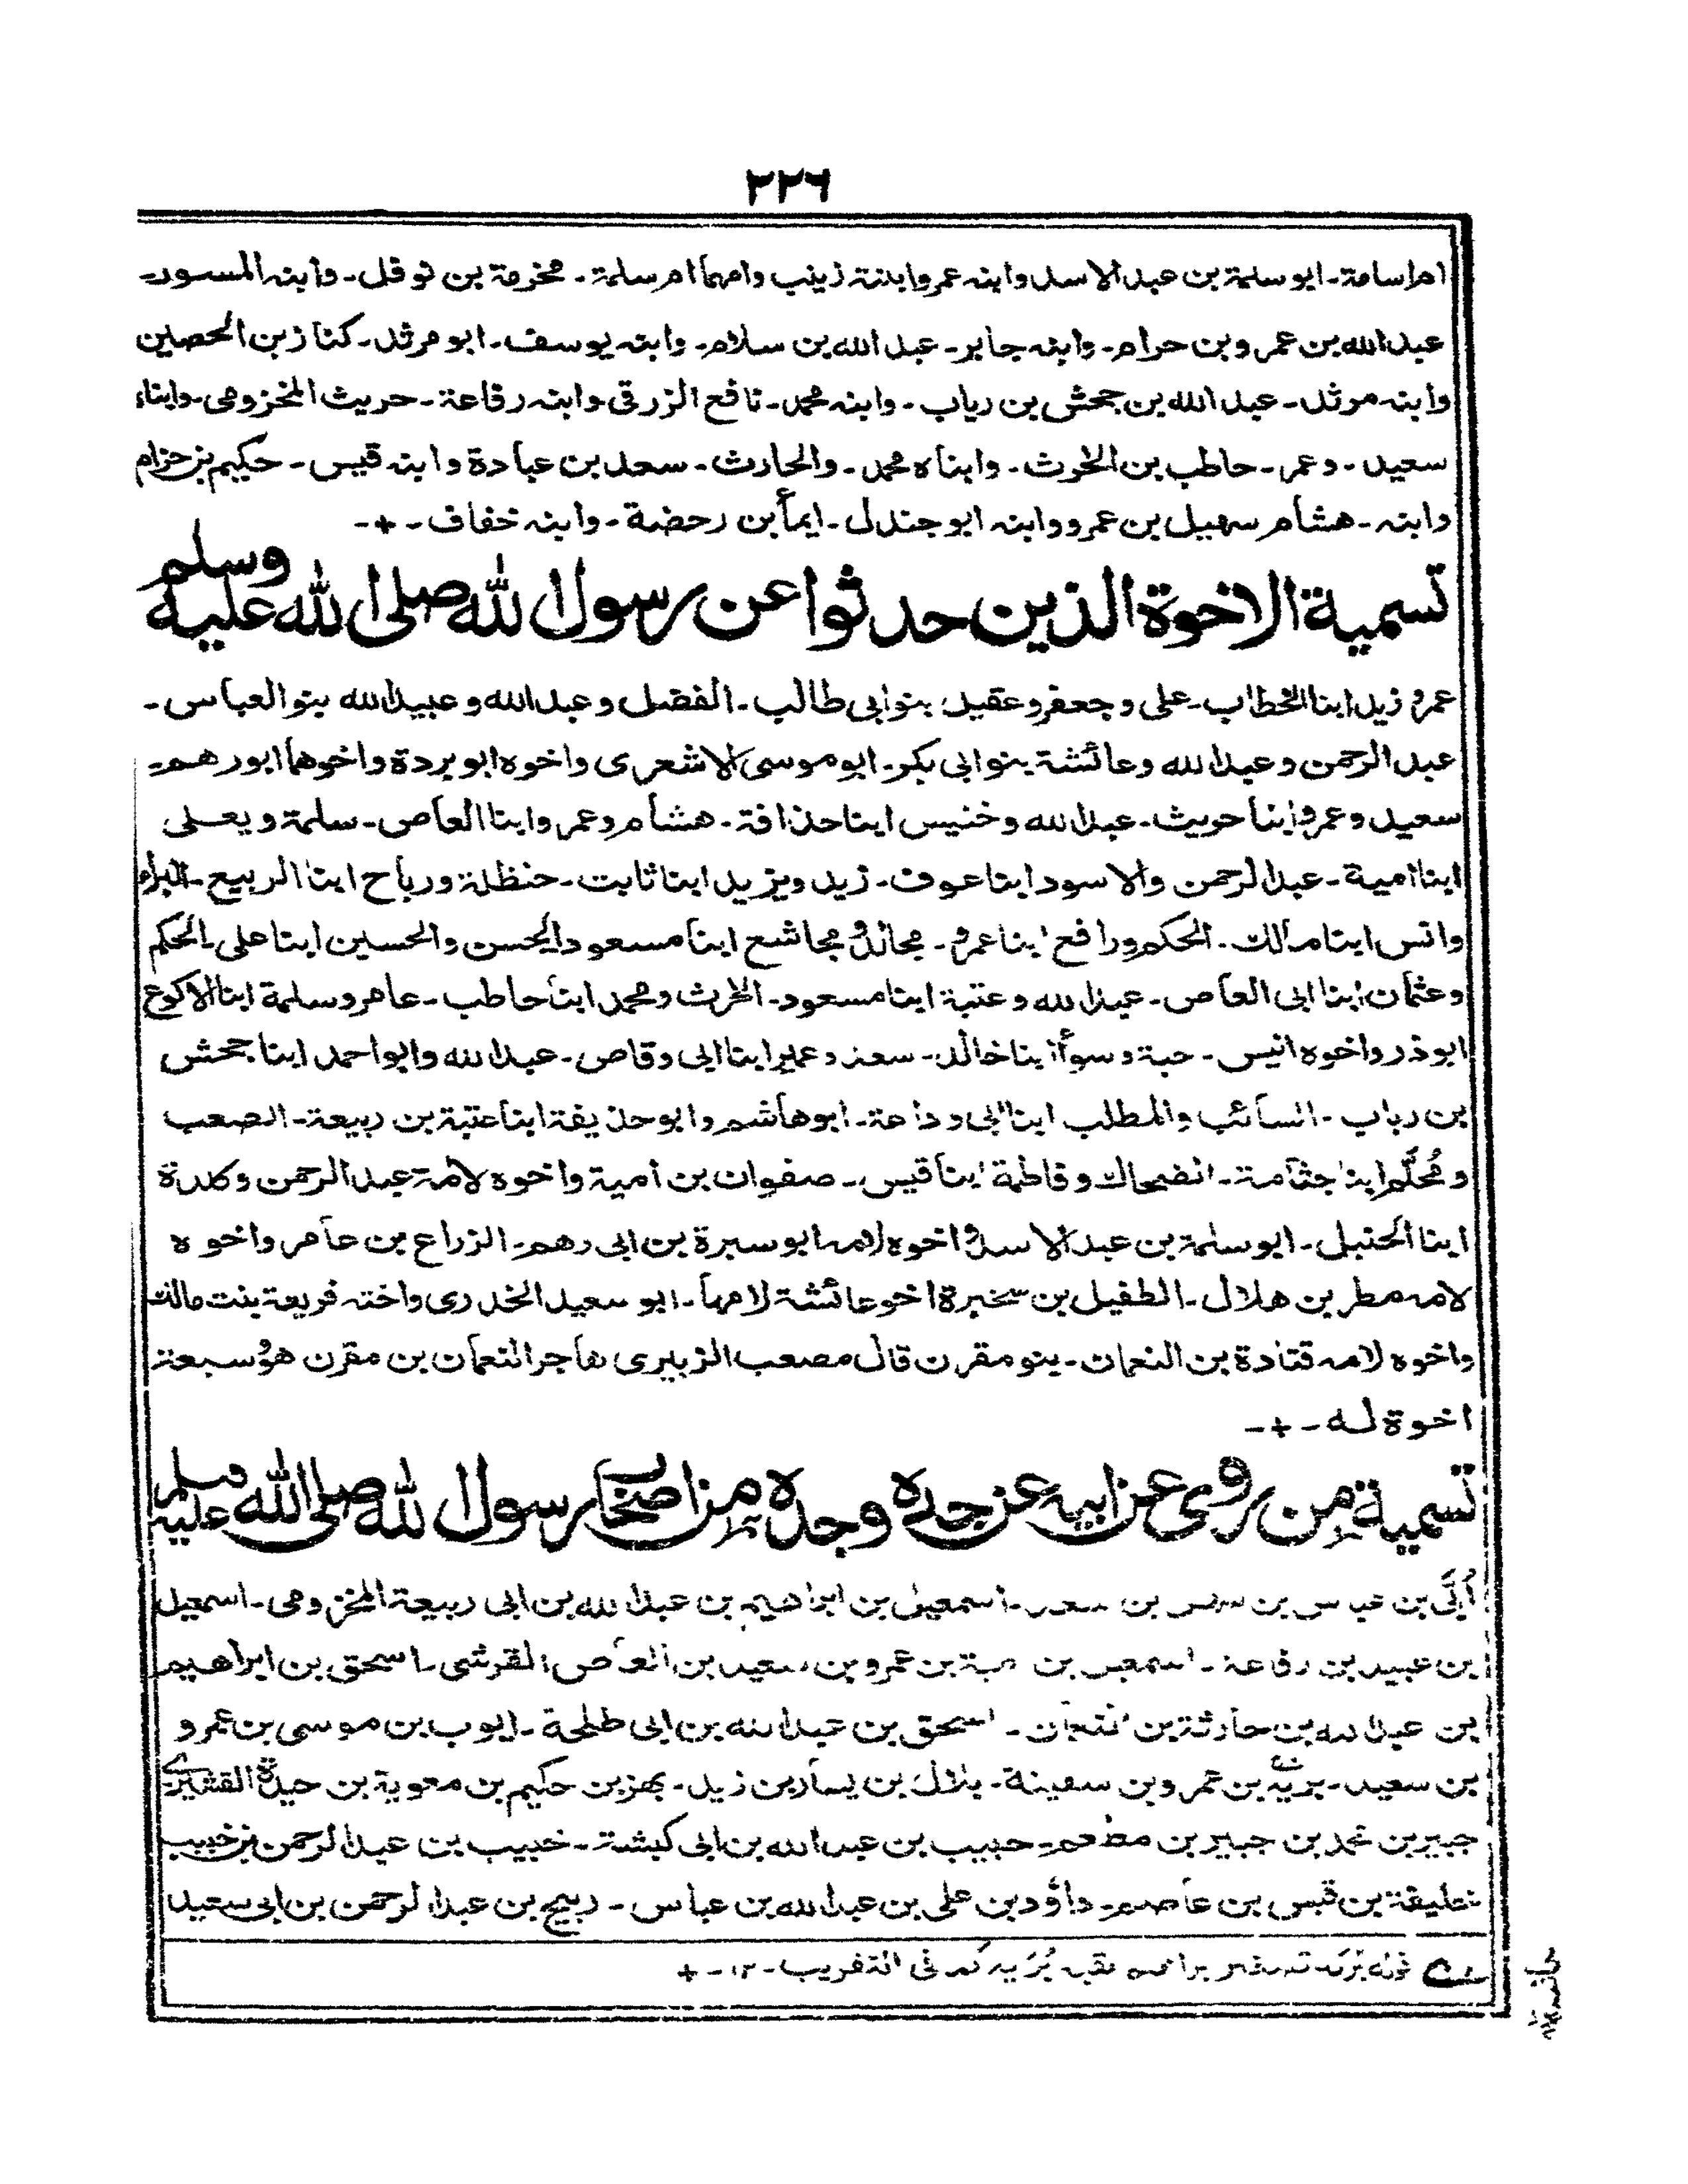 ٢٢٦
ام اسامة۔ ابو سلمة بن عبد الاسد وابنه عمر وابنته زينب وامهما ام سلمة۔ مخرمة بن نوفل۔ وابنه المسور۔
عبد الله بن عمرو بن حرام۔ وابنه جابر۔ عبد الله بن سلام۔ وابنه يوسف۔ ابو مرثد۔ كناز بن الحصين
وابنه مرثد۔ عبد الله بن جحش بن رياب۔ وابنه محمد۔ نافع الزرقى وابنه رفاعة۔ حريث المخزومى۔ وابناه
سعيد۔ وعمر۔ حاطب بن الحرث۔ وابناه محمد۔ والحارث۔ سعد بن عبادة وابنه قيس۔ حكيم بن حزام
وابنه۔ هشام سهيل بن عمرو وابنه ابو جندل۔ ايمأ بن رحضة۔ وابنه خفاف۔+۔
تسمية الاخوة الذين حدثوا عن رسول الله صلى الله عليه وسلم
عمر وزيد ابنا الخطاب۔ على وجعفر وعقيل بنو ابى طالب۔ الفضل وعبد الله وعبيد الله بنو العباس۔
عبد الرحمن وعبد الله وعائشة بنو ابى بكر۔ ابو موسى الاشعرى واخوه ابو بردة واخوهما ابو رهم۔
سعيد وعمرو ابنا حريث۔ عبد الله وخنيس ابنا حذافة۔ هشام وعمر وابنا العاص۔ سلمة ويعلى
ابنا امية۔ عبد الرحمن والاسود ابنا عوف۔ زيد ويزيد ابنا ثابت۔ حنظلة ورباح ابنا الربيع۔ البراء
وانس ابنا مالك۔ الحكم ورافع ابنا عمرو۔ مجالد ومجاشع ابنا مسعود الحسن والحسين ابنا على۔ الحكم
وعثمان ابنا ابى العاص۔ عبد الله وعتبة ابنا مسعود۔ الحرث ومحمد ابنا حاطب۔ عامر وسلمة ابنا الاكوع
ابو ذر واخوه انيس۔ حبة وسوأ ابنا خالد۔ سعد وعمير ابنا ابى وقاص۔ عبد الله وابو احمد ابنا جحش
بن رياب۔ السائب والمطلب ابنا ابى وداعة۔ ابو هاشم وابو حذيفة ابنا عتبة بن ربيعة۔ الصعب
ومُحلَّم ابنا جثامة۔ الضحاك وفاطمة ابنا قيس۔ صفوان بن امية واخوه لامه عبد الرحمن وكلدة
ابنا الحنبل۔ ابو سلمة بن عبد الاسد واخوه لامه ابو سبرة بن ابى رهم۔ الزراع بن عامر واخوه
لامه مطر بن هلال۔ الطفيل بن سخبرة اخو عائشة لامها۔ ابو سعيد الخدرى واخته فريعة بنت مالك
واخوه لامه قتادة بن النعمان۔ بنو مقرن قال مصعب الزبيرى هاجر النعمان بن مقرن هو وسبعة
اخوة له۔+۔
تسمية من روى عن ابيه عن جده وجده من اصحاب رسول الله صلى الله عليه وسلم
اُبَىّ بن عباس بن سهل بن سعد۔ اسمعيل بن ابراهيم بن عبد الله بن ابى ربيعة المخزومى۔ اسمعيل
بن عبيد بن رفاعة۔ اسمعيل بن امية بن عمرو بن سعيد بن العاص القرشى۔ اسحق بن ابراهيم
بن عبد الله بن حارثة بن النعمان۔ اسحق بن عبد الله بن ابى طلحة۔ ايوب بن موسى بن عمرو
بن سعيد۔ بريه بن عمرو بن سفينة۔ بلال بن يسار بن زيد۔ بهز بن حكيم بن معوية بن حيدة القشيرى
جبير بن محمد بن جبير بن مطعم۔ حبيب بن عبد الله بن ابى كبشة۔ خبيب بن عبد الرحمن بن خبيب
خليفة بن قيس بن عاصم۔ داؤد بن على بن عبد الله بن عباس۔ ربيح بن عبد الرحمن بن ابى سعيد
قوله بُرَيه لقبه بُرَيه كما فى التقريب۔١٢۔+